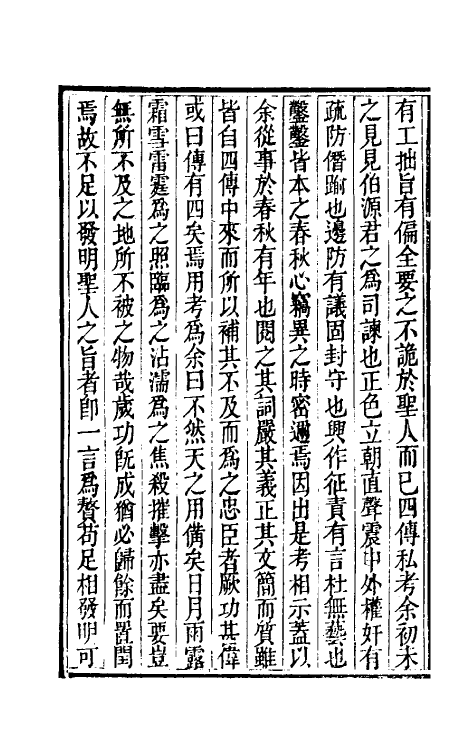 有工拙旨有偏全要之不詭於聖人而已四傳私考余初未
之見見伯源君之為司諫也正色立朝直聲震中外權奸有
疏防僭踰也邊防有議固封守也興作征責有言杜無藝也
鑿鑿皆本之春秋心竊異之時密邇焉因出是考相示蓋以
余從事於春秋有年也閱之其詞嚴其義正其文簡而質雖
皆自四傳中來而所以補其不及而為之忠臣者厥功甚偉
或曰傳有四矣焉用考為余曰不然天之用備矣日月雨露
霜雪雷霆為之照臨為之沾濡為之焦殺摧擊亦盡矣要豈
無所不及之地所不被之物哉歲功既成猶必歸餘而置閏
焉故不足以發明聖人之旨者卽一言為贅苟足相發明可